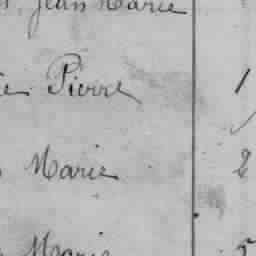 Jean Marie
Pierre 1
Marie 2
Marie 5